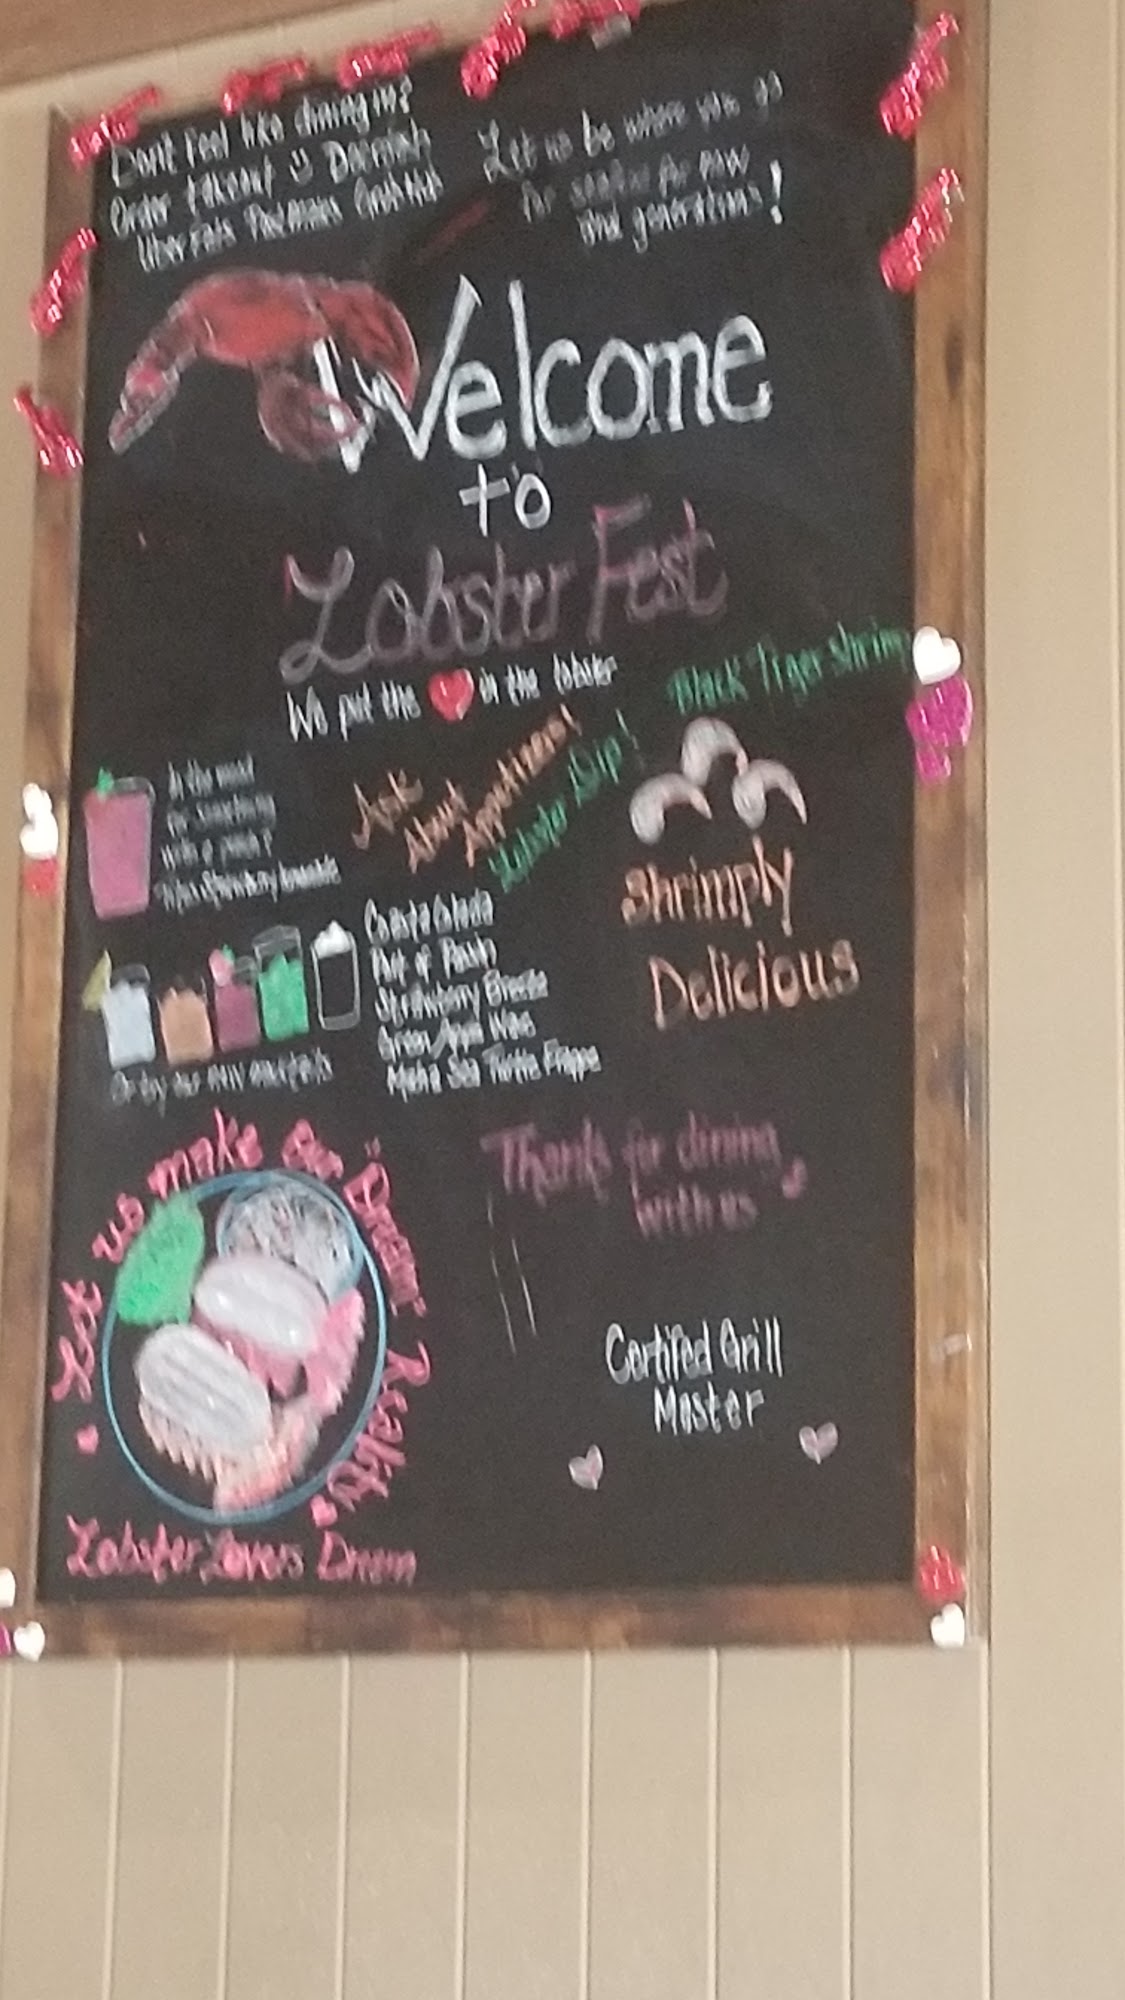 Don't feel like dining in?
Order takeout :) Doordash
Uber Eats Postmates Grubhub
Let us be where you go
for seafood for now
and generations!
Welcome
to
Lobster Fest
We put the ❤ in the lobster
Black Tiger Shrimp
In the mood
for something
with a punch?
Ask
About
Appetizers!
Lobster Dip!
Shrimply
Delicious
Strawberry Breeze
Green Apple Wave
Maha Sea Turtle Frappe
Or try our new mocktails
Let us make our "Dream" Reality
Thanks for dining
with us
Certifed Grill
Master
Lobster Lovers Dream